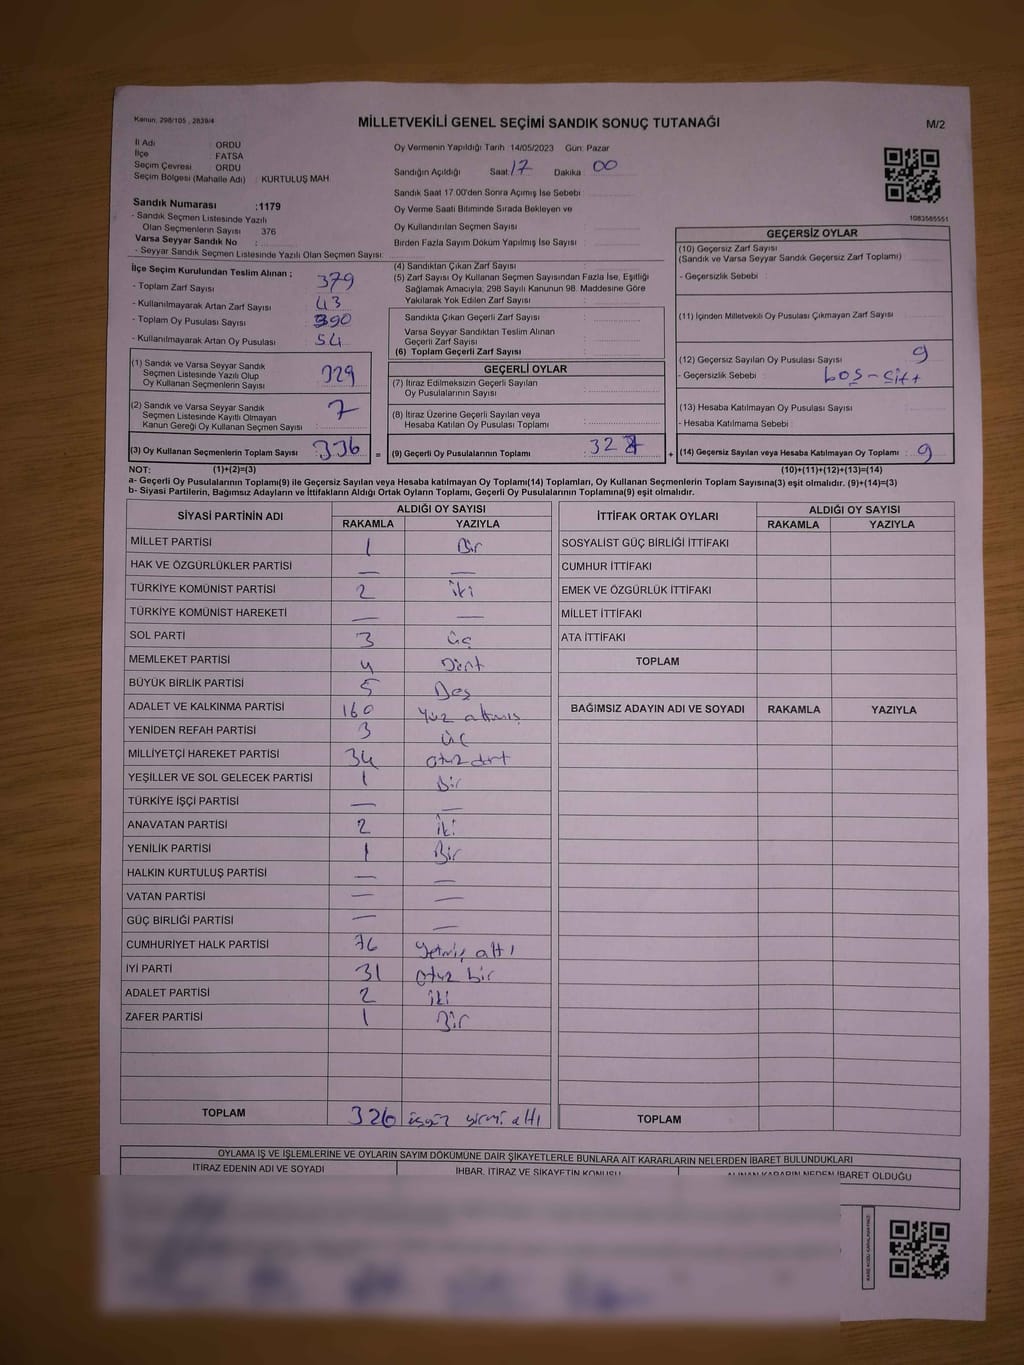 Kanun, 298/105 , 2839/4
MİLLETVEKİLİ GENEL SEÇİMİ SANDIK SONUÇ TUTANAĞI
M/2
İl Adı : ORDU
İlçe : FATSA
Seçim Çevresi : ORDU
Seçim Bölgesi (Mahalle Adı) : KURTULUŞ MAH.
Sandık Numarası :1179
- Sandık Seçmen Listesinde Yazılı
Olan Seçmenlerin Sayısı 376
Varsa Seyyar Sandık No :
- Seyyar Sandık Seçmen Listesinde Yazılı Olan Seçmen Sayısı:
Oy Vermenin Yapıldığı Tarih :14/05/2023 Gün: Pazar
Sandığın Açıldığı Saat: 17 Dakika: 00
Sandık Saat 17.00'den Sonra Açımış İse Sebebi :
Oy Verme Saati Bitiminde Sırada Bekleyen ve
Oy Kullandırılan Seçmen Sayısı :
Birden Fazla Sayım Döküm Yapılmış İse Sayısı :
1083565551
İlçe Seçim Kurulundan Teslim Alınan ;
- Toplam Zarf Sayısı : 379
- Kullanılmayarak Artan Zarf Sayısı : 43
- Toplam Oy Pusulası Sayısı : 390
- Kullanılmayarak Artan Oy Pusulası : 54
(1) Sandık ve Varsa Seyyar Sandık
Seçmen Listesinde Yazılı Olup
Oy Kullanan Seçmenlerin Sayısı : 329
(2) Sandık ve Varsa Seyyar Sandık
Seçmen Listesinde Kayıtlı Olmayan
Kanun Gereği Oy Kullanan Seçmen Sayısı : 7
(3) Oy Kullanan Seçmenlerin Toplam Sayısı : 336 =
(4) Sandıktan Çıkan Zarf Sayısı :
(5) Zarf Sayısı Oy Kullanan Seçmen Sayısından Fazla İse, Eşitliği
Sağlamak Amacıyla, 298 Sayılı Kanunun 98. Maddesine Göre
Yakılarak Yok Edilen Zarf Sayısı :
Sandıkta Çıkan Geçerli Zarf Sayısı :
Varsa Seyyar Sandıktan Teslim Alınan
Geçerli Zarf Sayısı :
(6) Toplam Geçerli Zarf Sayısı :
GEÇERLİ OYLAR
(7) İtiraz Edilmeksizin Geçerli Sayılan
Oy Pusulalarının Sayısı :
(8) İtiraz Üzerine Geçerli Sayılan veya
Hesaba Katılan Oy Pusulası Toplamı :
(9) Geçerli Oy Pusulalarının Toplamı : 327 +
GEÇERSİZ OYLAR
(10) Geçersiz Zarf Sayısı :
(Sandık ve Varsa Seyyar Sandık Geçersiz Zarf Toplamı)
- Geçersizlik Sebebi :
(11) İçinden Milletvekili Oy Pusulası Çıkmayan Zarf Sayısı :
(12) Geçersiz Sayılan Oy Pusulası Sayısı : 9
- Geçersizlik Sebebi : boş-çift
(13) Hesaba Katılmayan Oy Pusulası Sayısı :
- Hesaba Katılmama Sebebi :
(14) Geçersiz Sayılan veya Hesaba Katılmayan Oy Toplamı : 9
NOT: (1)+(2)=(3) (10)+(11)+(12)+(13)=(14)
a- Geçerli Oy Pusulalarının Toplamı(9) ile Geçersiz Sayılan veya Hesaba Katılmayan Oy Toplamı(14) Toplamları, Oy Kullanan Seçmenlerin Toplam Sayısına(3) eşit olmalıdır. (9)+(14)=(3)
b- Siyasi Partilerin, Bağımsız Adayların ve İttifakların Aldığı Ortak Oyların Toplamı, Geçerli Oy Pusulalarının Toplamına(9) eşit olmalıdır.
SİYASİ PARTİNİN ADI ALDIĞI OY SAYISI
RAKAMLA YAZIYLA
MİLLET PARTİSİ 1 Bir
HAK VE ÖZGÜRLÜKLER PARTİSİ — —
TÜRKİYE KOMÜNİST PARTİSİ 2 iki
TÜRKİYE KOMÜNİST HAREKETİ — —
SOL PARTİ 3 üç
MEMLEKET PARTİSİ 4 Dört
BÜYÜK BİRLİK PARTİSİ 5 Beş
ADALET VE KALKINMA PARTİSİ 160 Yüz altmış
YENİDEN REFAH PARTİSİ 3 üç
MİLLİYETÇİ HAREKET PARTİSİ 34 otuz dört
YEŞİLLER VE SOL GELECEK PARTİSİ 1 Bir
TÜRKİYE İŞÇİ PARTİSİ — —
ANAVATAN PARTİSİ 2 iki
YENİLİK PARTİSİ 1 Bir
HALKIN KURTULUŞ PARTİSİ — —
VATAN PARTİSİ — —
GÜÇ BİRLİĞİ PARTİSİ — —
CUMHURİYET HALK PARTİSİ 76 yetmiş altı
İYİ PARTİ 31 otuz bir
ADALET PARTİSİ 2 iki
ZAFER PARTİSİ 1 Bir
TOPLAM 326 üçyüz yirmi altı
İTTİFAK ORTAK OYLARI ALDIĞI OY SAYISI
RAKAMLA YAZIYLA
SOSYALİST GÜÇ BİRLİĞİ İTTİFAKI
CUMHUR İTTİFAKI
EMEK VE ÖZGÜRLÜK İTTİFAKI
MİLLET İTTİFAKI
ATA İTTİFAKI
TOPLAM
BAĞIMSIZ ADAYIN ADI VE SOYADI RAKAMLA YAZIYLA
TOPLAM
OYLAMA İŞ VE İŞLEMLERİNE VE OYLARIN SAYIM DÖKÜMÜNE DAİR ŞİKAYETLERLE BUNLARA AİT KARARLARIN NELERDEN İBARET BULUNDUKLARI
İTİRAZ EDENİN ADI VE SOYADI İHBAR, İTİRAZ VE ŞİKAYETİN KONUSU ALINAN KARARIN NEDEN İBARET OLDUĞU